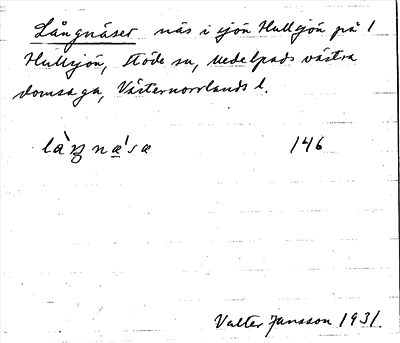 Långnäset näs i sjön Hullsjön på 1
Hullsjön, Stöde sn, Medelpads västra
domsaga, Västernorrlands l.
146
Valter Jansson 1931.